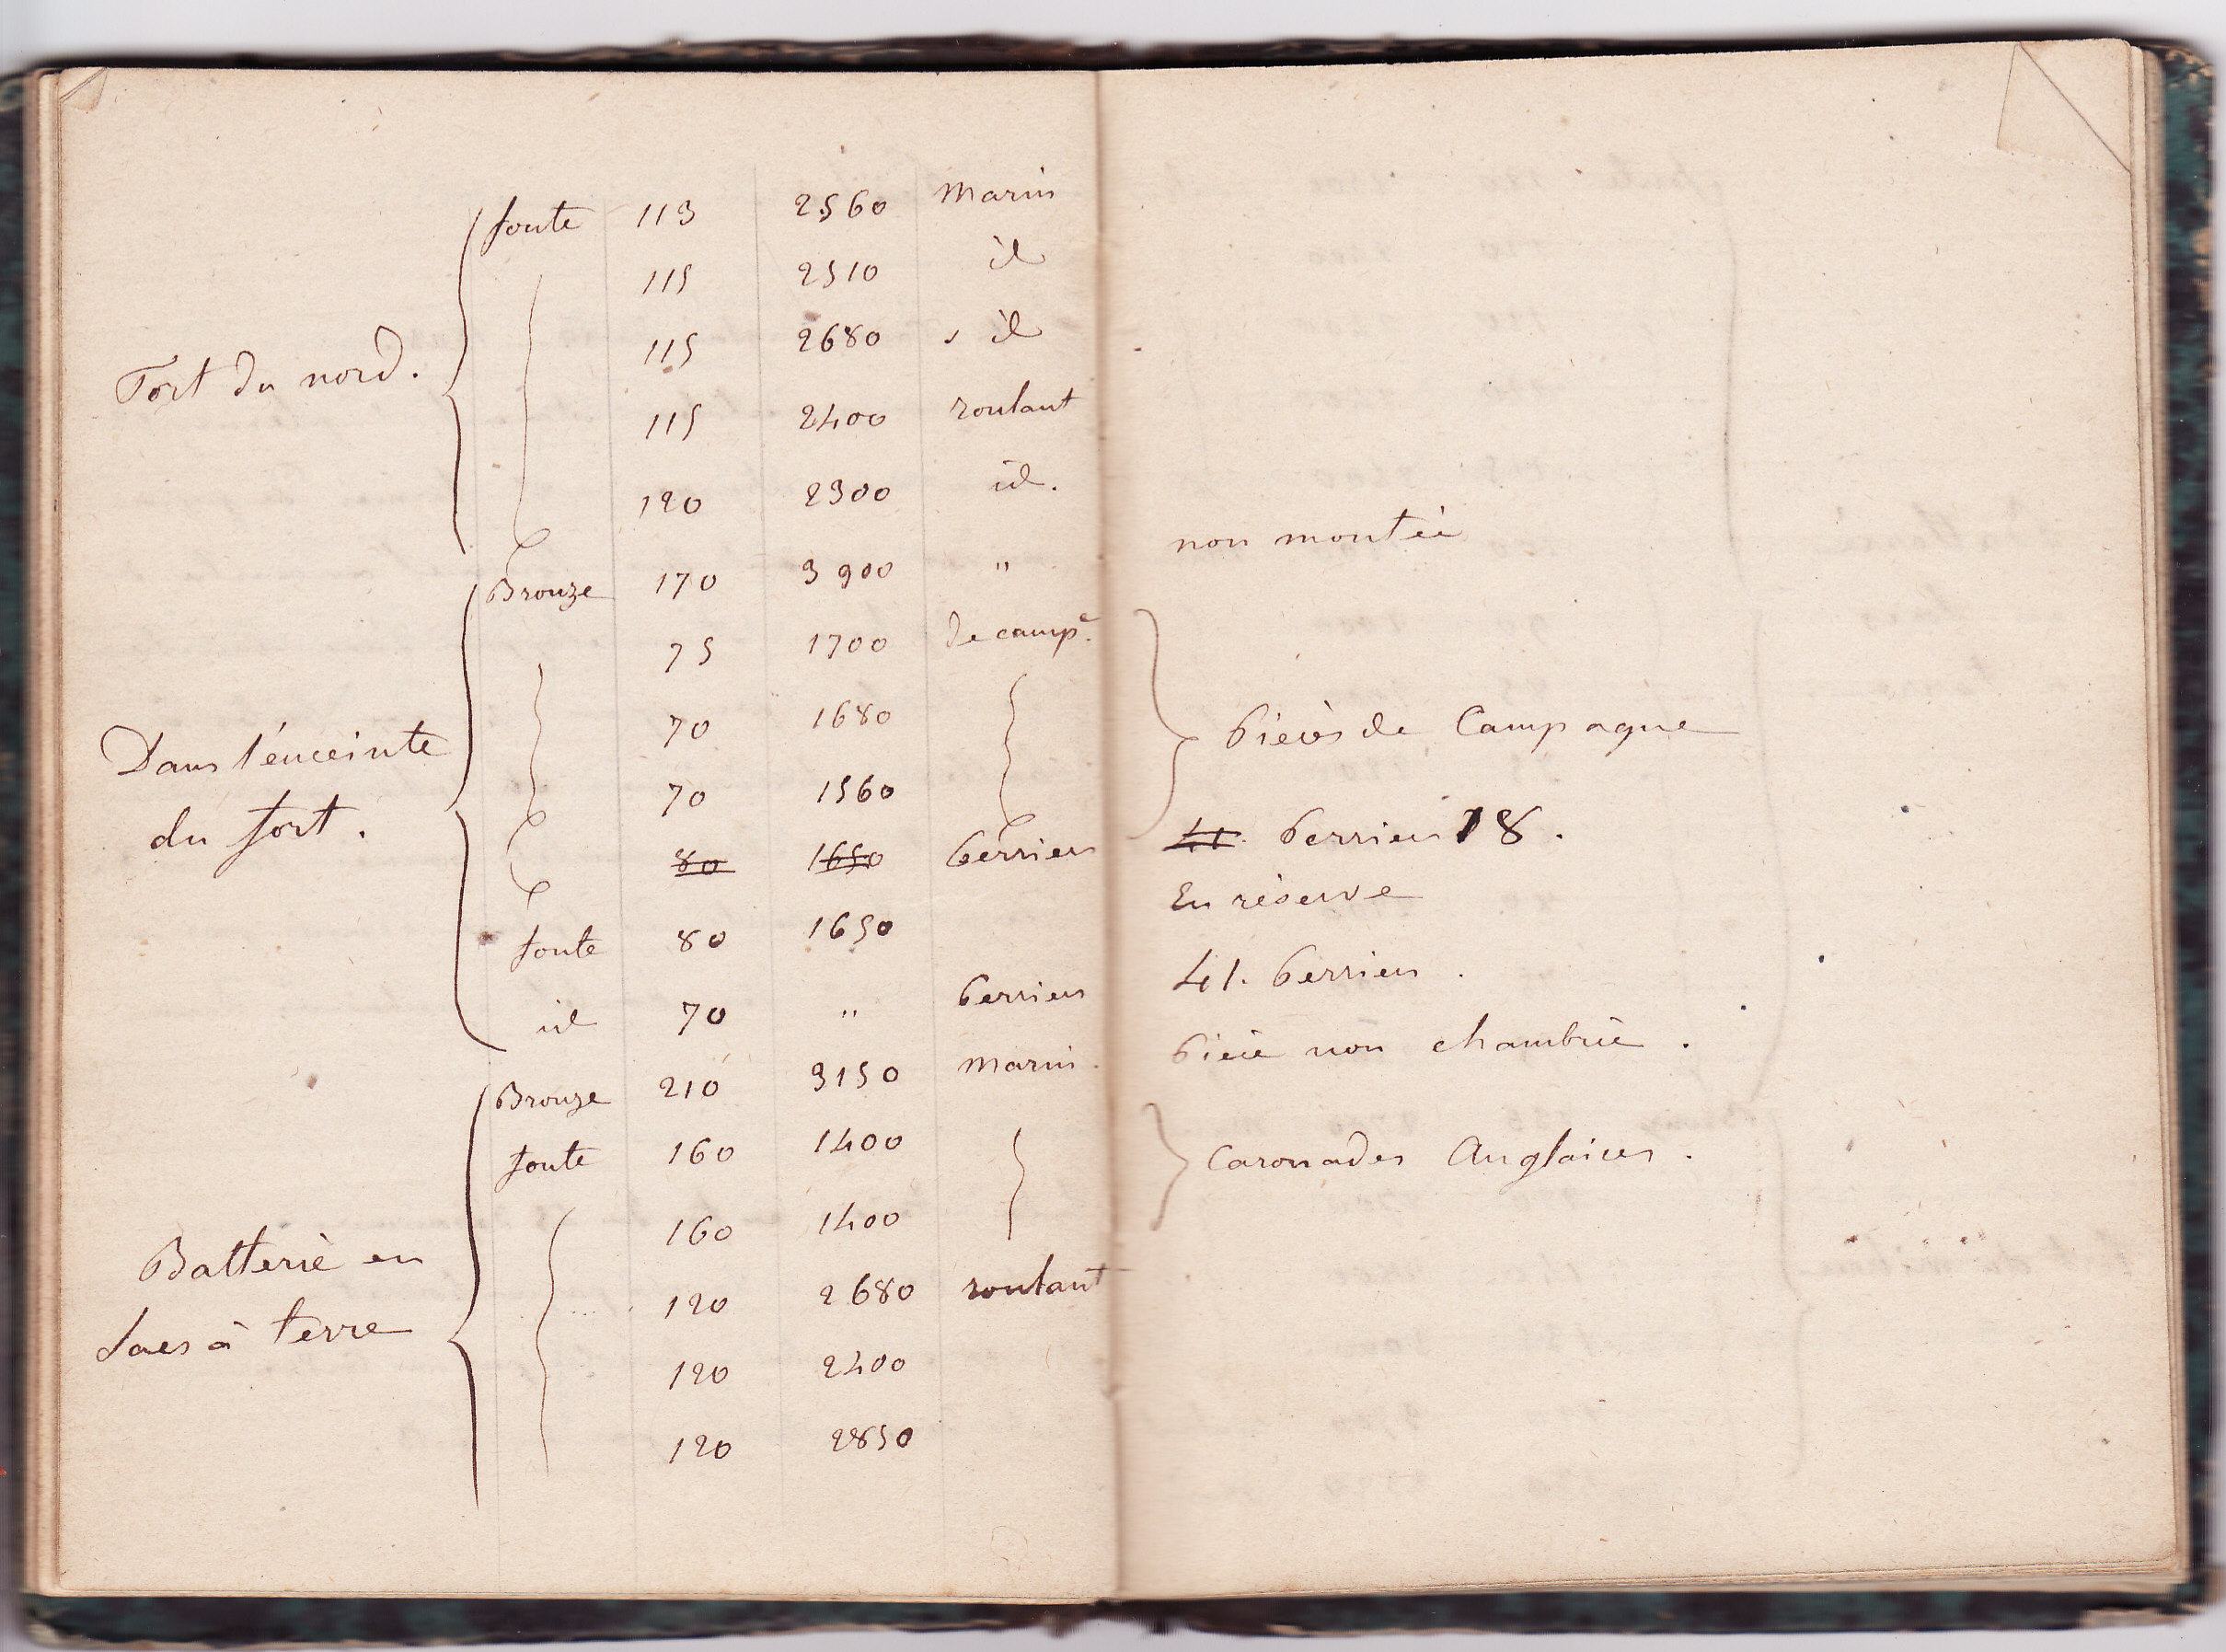 fonte 113 2560 Marin
115 2510 id
115 2680 id
Fort du nord.
115 2400 roulant
120 2300 id.
Bronze 170 3900 " non montée
75 1700 de campe.
70 1680
Dans l'enceinte
du fort.
Pièces de Campagne
70 1560
80 1650 Perriers 41. Perriers 18.
fonte 80 1650 En réserve
id 70 " Perriers 41. Perriers.
Bronze 210 3150 Marin. Pièce non chambrée.
fonte 160 1400
Caronades Anglaises.
160 1400
Batterie en
Sacs à terre
120 2680 roulant
120 2400
120 2850